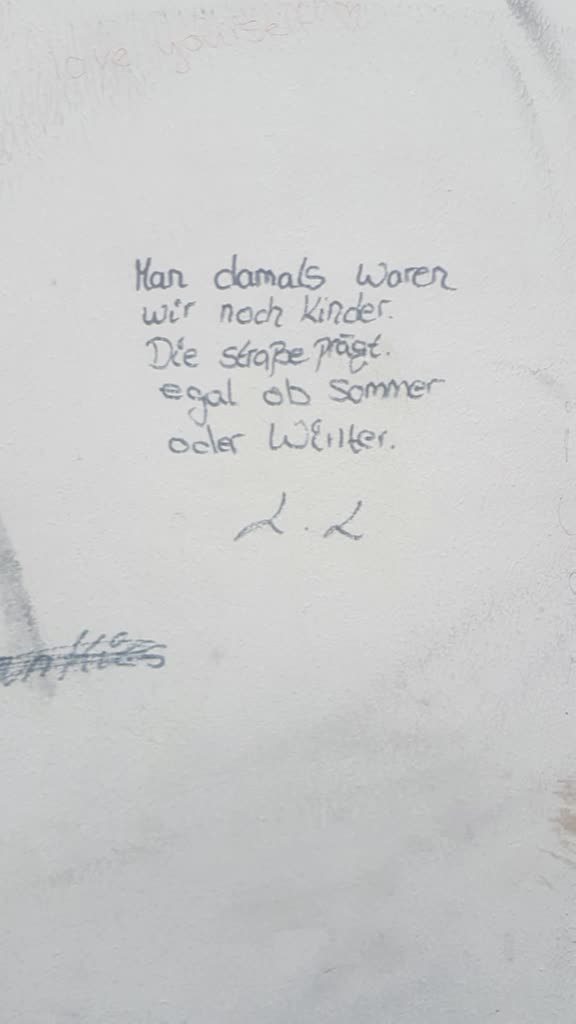 love yourself
Man damals waren
wir noch Kinder.
Die straße prägt.
egal ob Sommer
oder Winter.
L.L